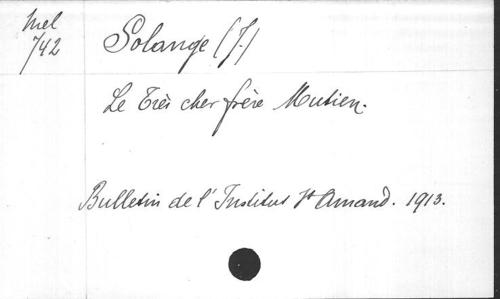 Mel
742
Solange (J.)
Le Très cher frère Mutien.
Bulletin de l'Institut St Amand. 1913.